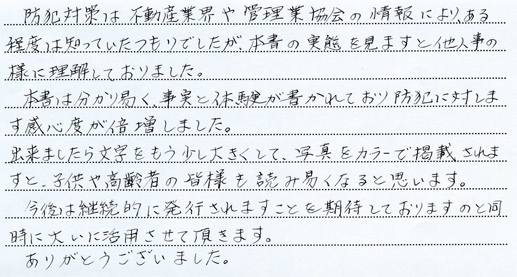 防犯対策は不動産業界や管理業協会の情報により、ある
程度は知っていたつもりでしたが、本書の実態を見ますと他人事の
様に理解しておりました。
本書は分かり易く、事実と体験が書かれており防犯に対しま
す感心度が倍増しました。
出来ましたら文字をもう少し大きくして、写真をカラーで掲載されま
すと、子供や高齢者の皆様も読み易くなると思います。
今後は継続的に発行されますことを期待しておりますのと同
時に大いに活用させて頂きます。
ありがとうございました。